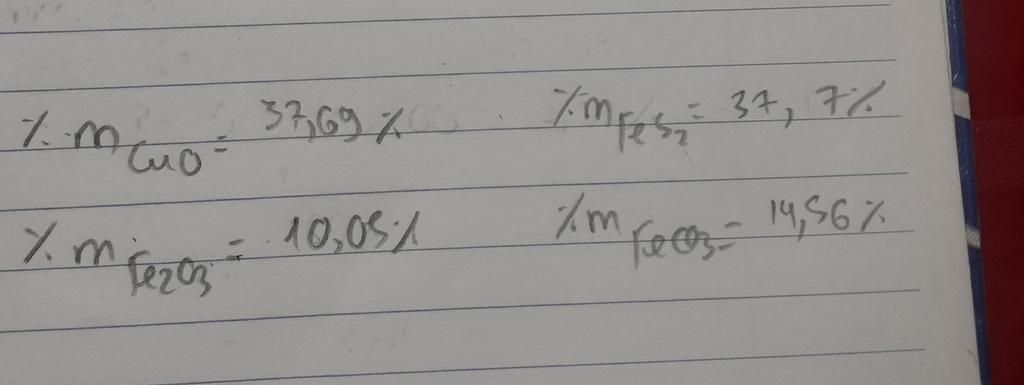 % m CuO = 37,69 % % m FeS2 = 37,7%
% m Fe2O3 = 10,05% % m FeCO3 = 14,56 %